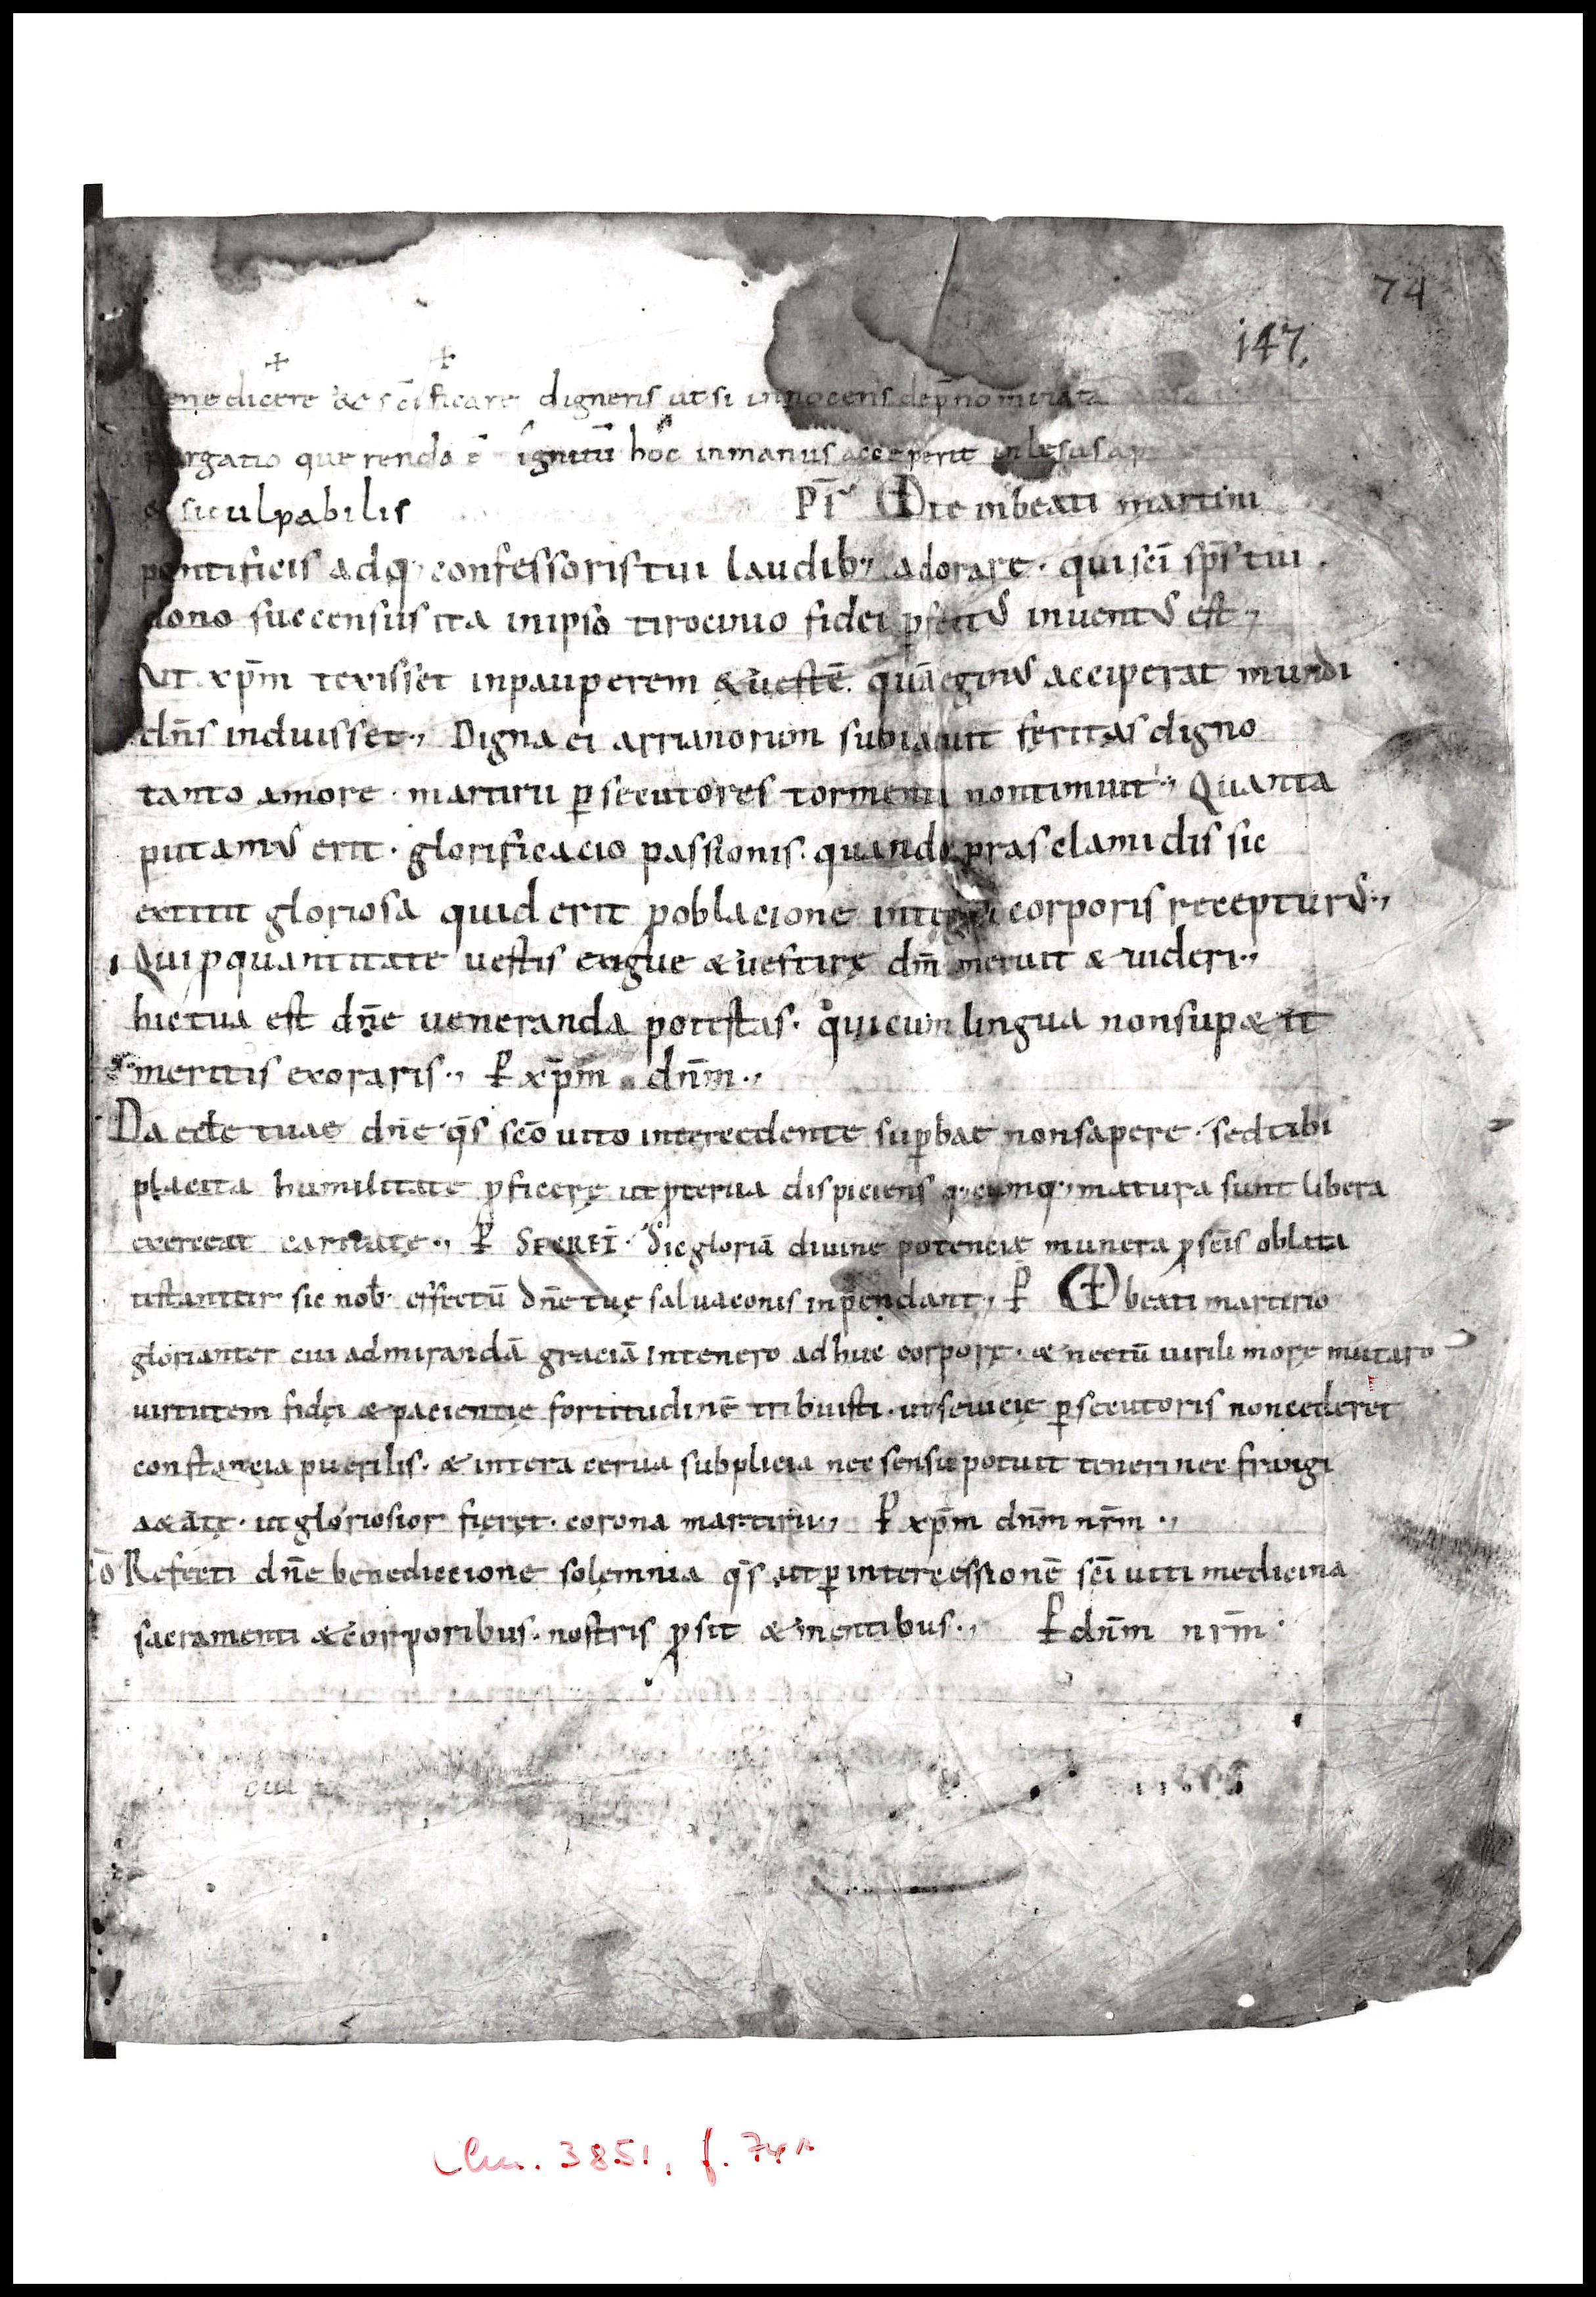 74
147.
benedicere &c scīficare digneris ut si innocens de p̄nominata
purgatio querenda ē ignitū hoc in manus acceperit inlesus ap
& si culpabilis P̄F VD Te in beati martini
pontificis adq; confessoris tui laudib; adorare · qui sc̄i sp̄s tui .
dono succensus ita in ipso tirocinio fidei ꝑfectus inuentus est ·,
Ut xp̄m texisset in paupere̅m & uestē quā egenus acciperat mundi
dn̄s induisset ·, Digna ei arrianorum subiacuit feritas digno
tanto amore · martirii ꝑsecutores tormenti non timuit ·, Quanta
putamus erit · glorificacio passionis · quando pras clamidis sic
extitit gloriosa quid erit ꝓ oblacione integri corporis recepturus ·,
Qui ꝓ quantitate uestis exigue & uestire dn̄m meruit & uideri ·,
hic tua est dn̄e ueneranda potestas · qui cum lingua non supp&it
meritis exoraris ·, ꝑ xp̄m dn̄m ·,
Da eccl̄e tuae dn̄e q̄s sc̄o uito intercedente suꝑbae non sapere · sed tibi
placita humilitate ꝓficere ut ꝓterua dispiciens q; cumq; matura sunt libera
exerceat caritate ·, ꝑ SECRET̄ · Sic gloriā diuine potencię munera ꝓ sc̄is oblata
testantur sic nob̄ effectū dn̄e tuę saluac̄onis inpendant ·, P̄ VD beati martirio
gloriantes cui admirandā graciā in tenero adhuc corpore · & necdū uirili more mutaro
uirtutem fidei & pacientię fortitudinē tribuisti · ut seuicię ꝑsecutoris non cederet
constancia puerilis · & inter acerua subplicia nec sensu potuit teneri nec frangi
a&ate · ut gloriosior fieret · corona martirii ·, ꝑ xp̄m dn̄m nr̄m ·,
cō Refecti dn̄e benediccione solemnia q̄s ut ꝑ intercessionē sc̄i uiti medicina
sacramenti & corporibus · nostris ꝓsit & mentibus ·, ꝑ dn̄m nr̄m ·
Clm. 3851, f. 74r